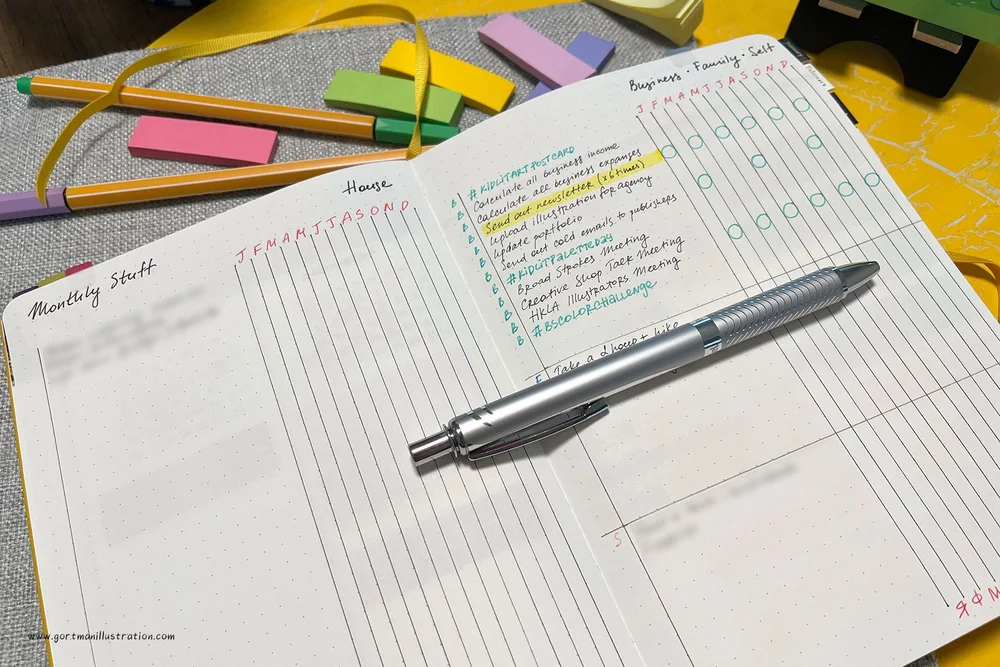 Monthly Stuff
House
J F M A M J J A S O N D
Business · Family · Self
J F M A M J J A S O N D
B #KIDLITARTPOSTCARD
B Calculate all business income
B Calculate all business expenses
B Send out newsletter (x6 times)
B Upload illustration for agency
B Update portfolio
B Send out cold emails to publishers
B #KIDLITPALETTEDAY
B Broad Strokes Meeting
B Creative Shop Talk Meeting
B HKLA Illustrators Meeting
B #BSCOLORCHALLENGE
F Take a
S
Я Ф М
www.gortmanillustration.com